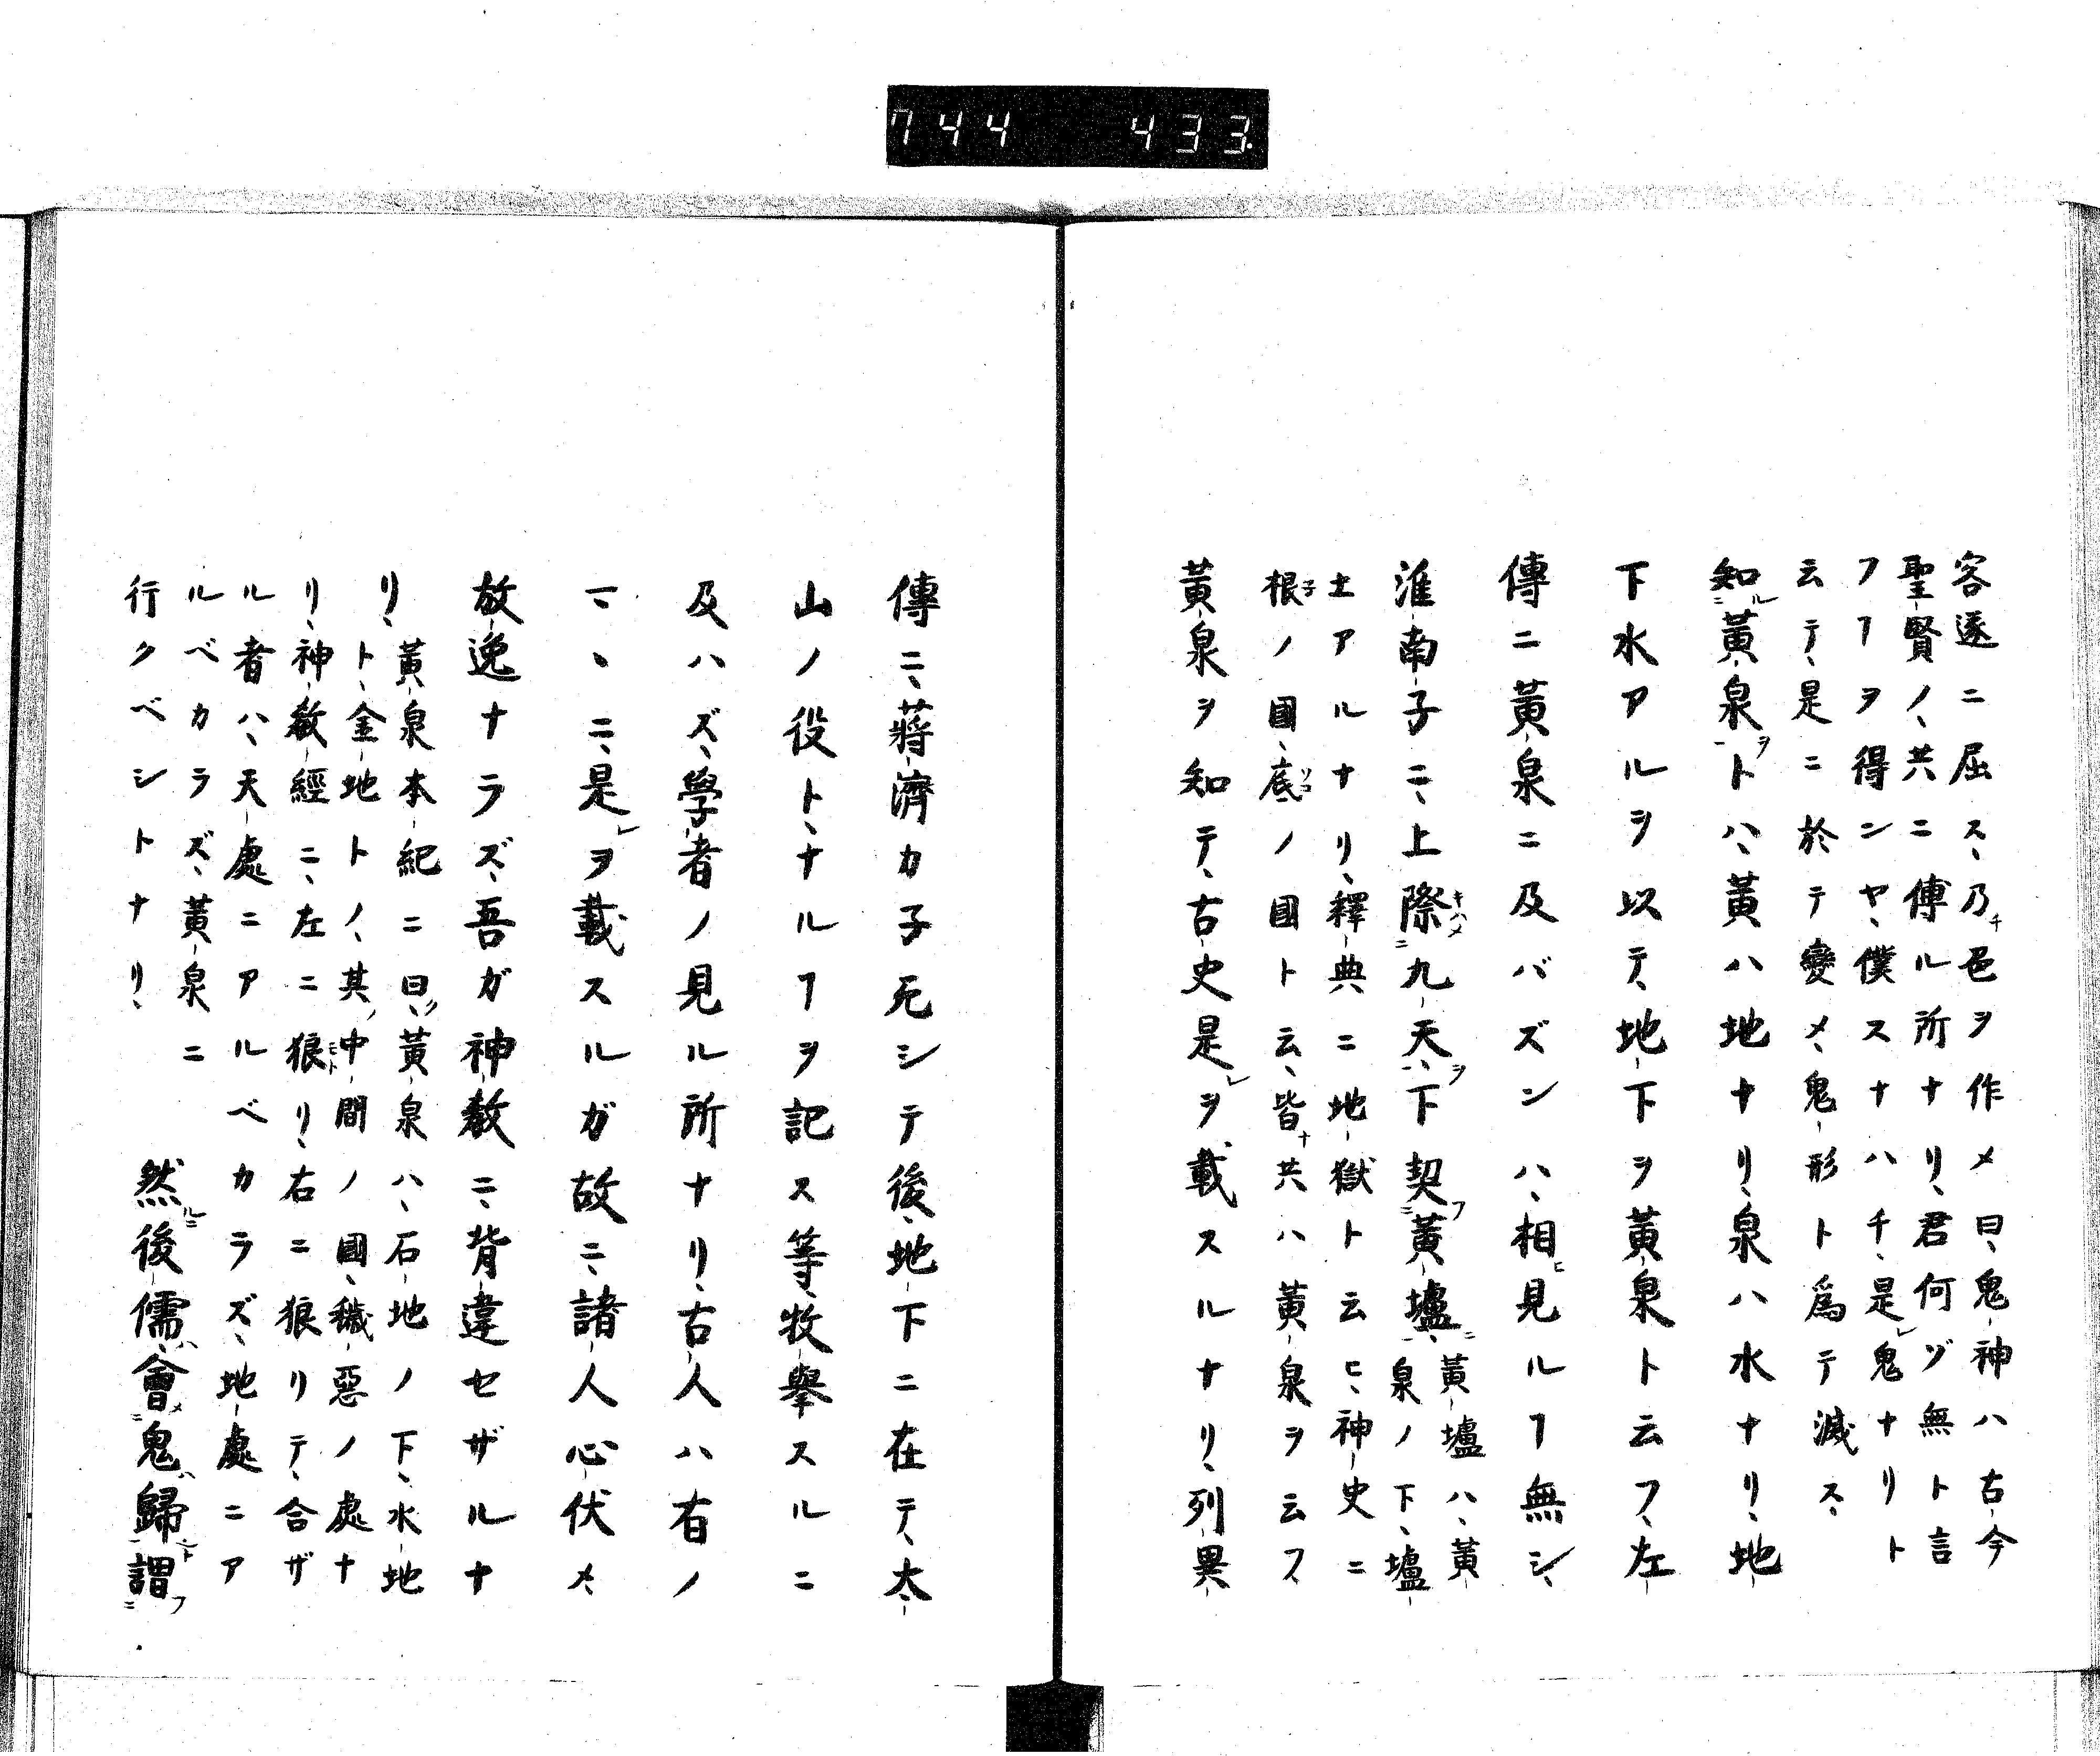 744 433
客遂ニ屈ス、乃チ色ヲ作メ曰、鬼神ハ古今
聖賢ノ、共ニ傳ル所ナリ、君何ゾ無ト言
フヿヲ得ンヤ、僕スナハチ、是レ鬼ナリト
云テ、是ニ於テ變メ、鬼形ト爲テ滅ス、
知ルニ黃泉ヲトハ、黃ハ地ナリ、泉ハ水ナリ、地
下水アルヲ以テ、地下ヲ黃泉ト云フ、左
傳ニ黃泉ニ及バズンハ、相ヒ見ルヿ無シ、
淮南子ニ、上際キハメニ九天ヲ、下契フニ黃壚ニ、
黃壚ハ、黃
泉ノ下、壚
土アルナリ、釋典ニ地獄ト云ヒ、神史ニ
根子ノ國、底ソコノ國ト云、皆ナ共ハ黃泉ヲ云フ
黃泉ヲ知テ、古史是レヲ載スルナリ、列異
傳ニ、蔣濟カ子死シテ後、地下ニ在テ、太
山ノ役ト、ナルヿヲ記ス等、牧擧スルニ
及ハズ、學者ノ見ル所ナリ、古人ハ右ノ
一、、ニ、是レヲ載スルガ故ニ、諸人心伏メ、
放逸ナラズ、吾ガ神敎ニ、背違セザルナ
リ、
黃泉本紀ニ曰、黃泉ハ、石地ノ下、水地
ト、金地トノ、其ノ中間ノ國、穢惡ノ處ナ
リ、神敎經ニ、左ニ狠モトリ、右ニ狠リテ、合ザ
ル者ハ、天處ニアルベカラズ、地處ニア
ルベカラズ、黃泉ニ
行クベシトナリ、
然ルニ後儒ハ、會メニ鬼ハ歸ト謂フニ